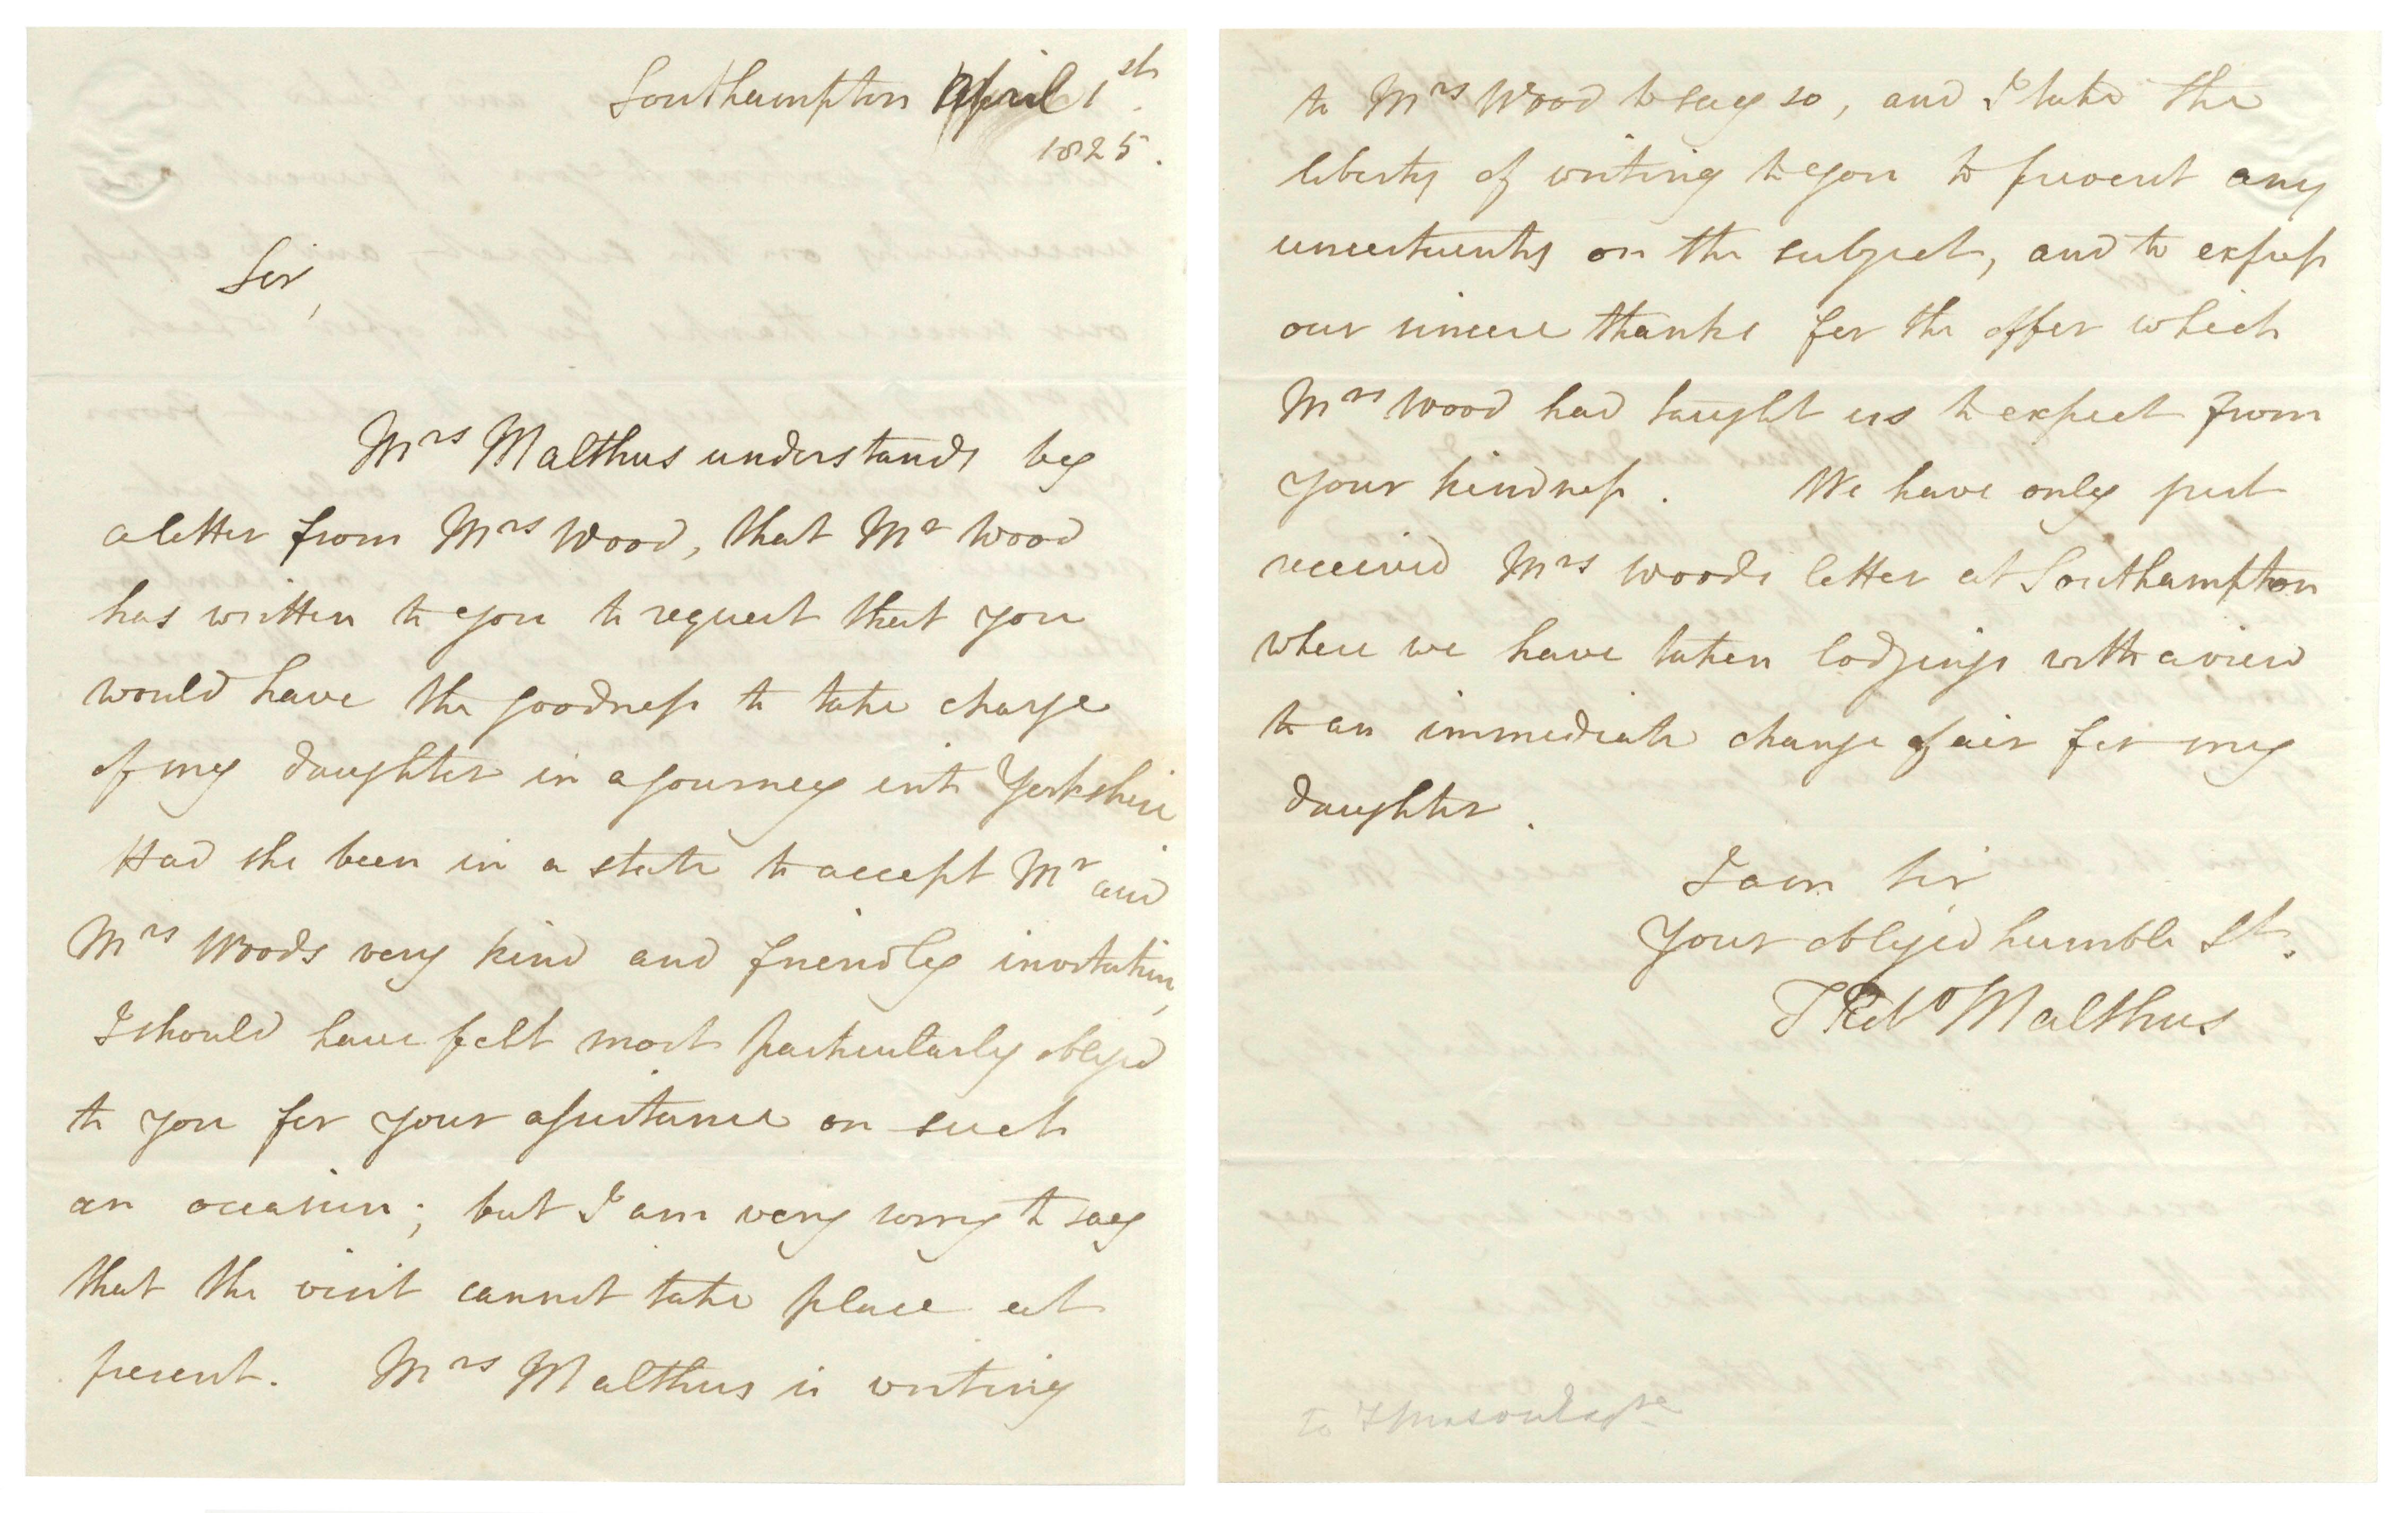 Southampton April 1st.
1825.
Sir,
Mrs Malthus understands by
a letter from Mrs Wood, that Mr Wood
has written to you to request that you
would have the goodness to take charge
of my daughter in a journey into Yorkshire.
Had she been in a state to accept Mr and
Mrs Woods very kind and friendly invitation,
I should have felt most particularly obliged
to you for your assistance on such
an occasion; but I am very sorry to say
that the visit cannot take place at
present. Mrs Malthus is writing
to Mrs Wood to say so, and I take the
liberty of writing to you to prevent any
uncertainty on the subject, and to express
our sincere thanks for the offer which
Mrs Wood had taught us to expect from
your kindness. We have only just
received Mrs Woods letter at Southampton
where we have taken lodgings with a view
to an immediate change of air for my
daughter.
I am Sir
Your obliged humble St.
T Robt Malthus
to